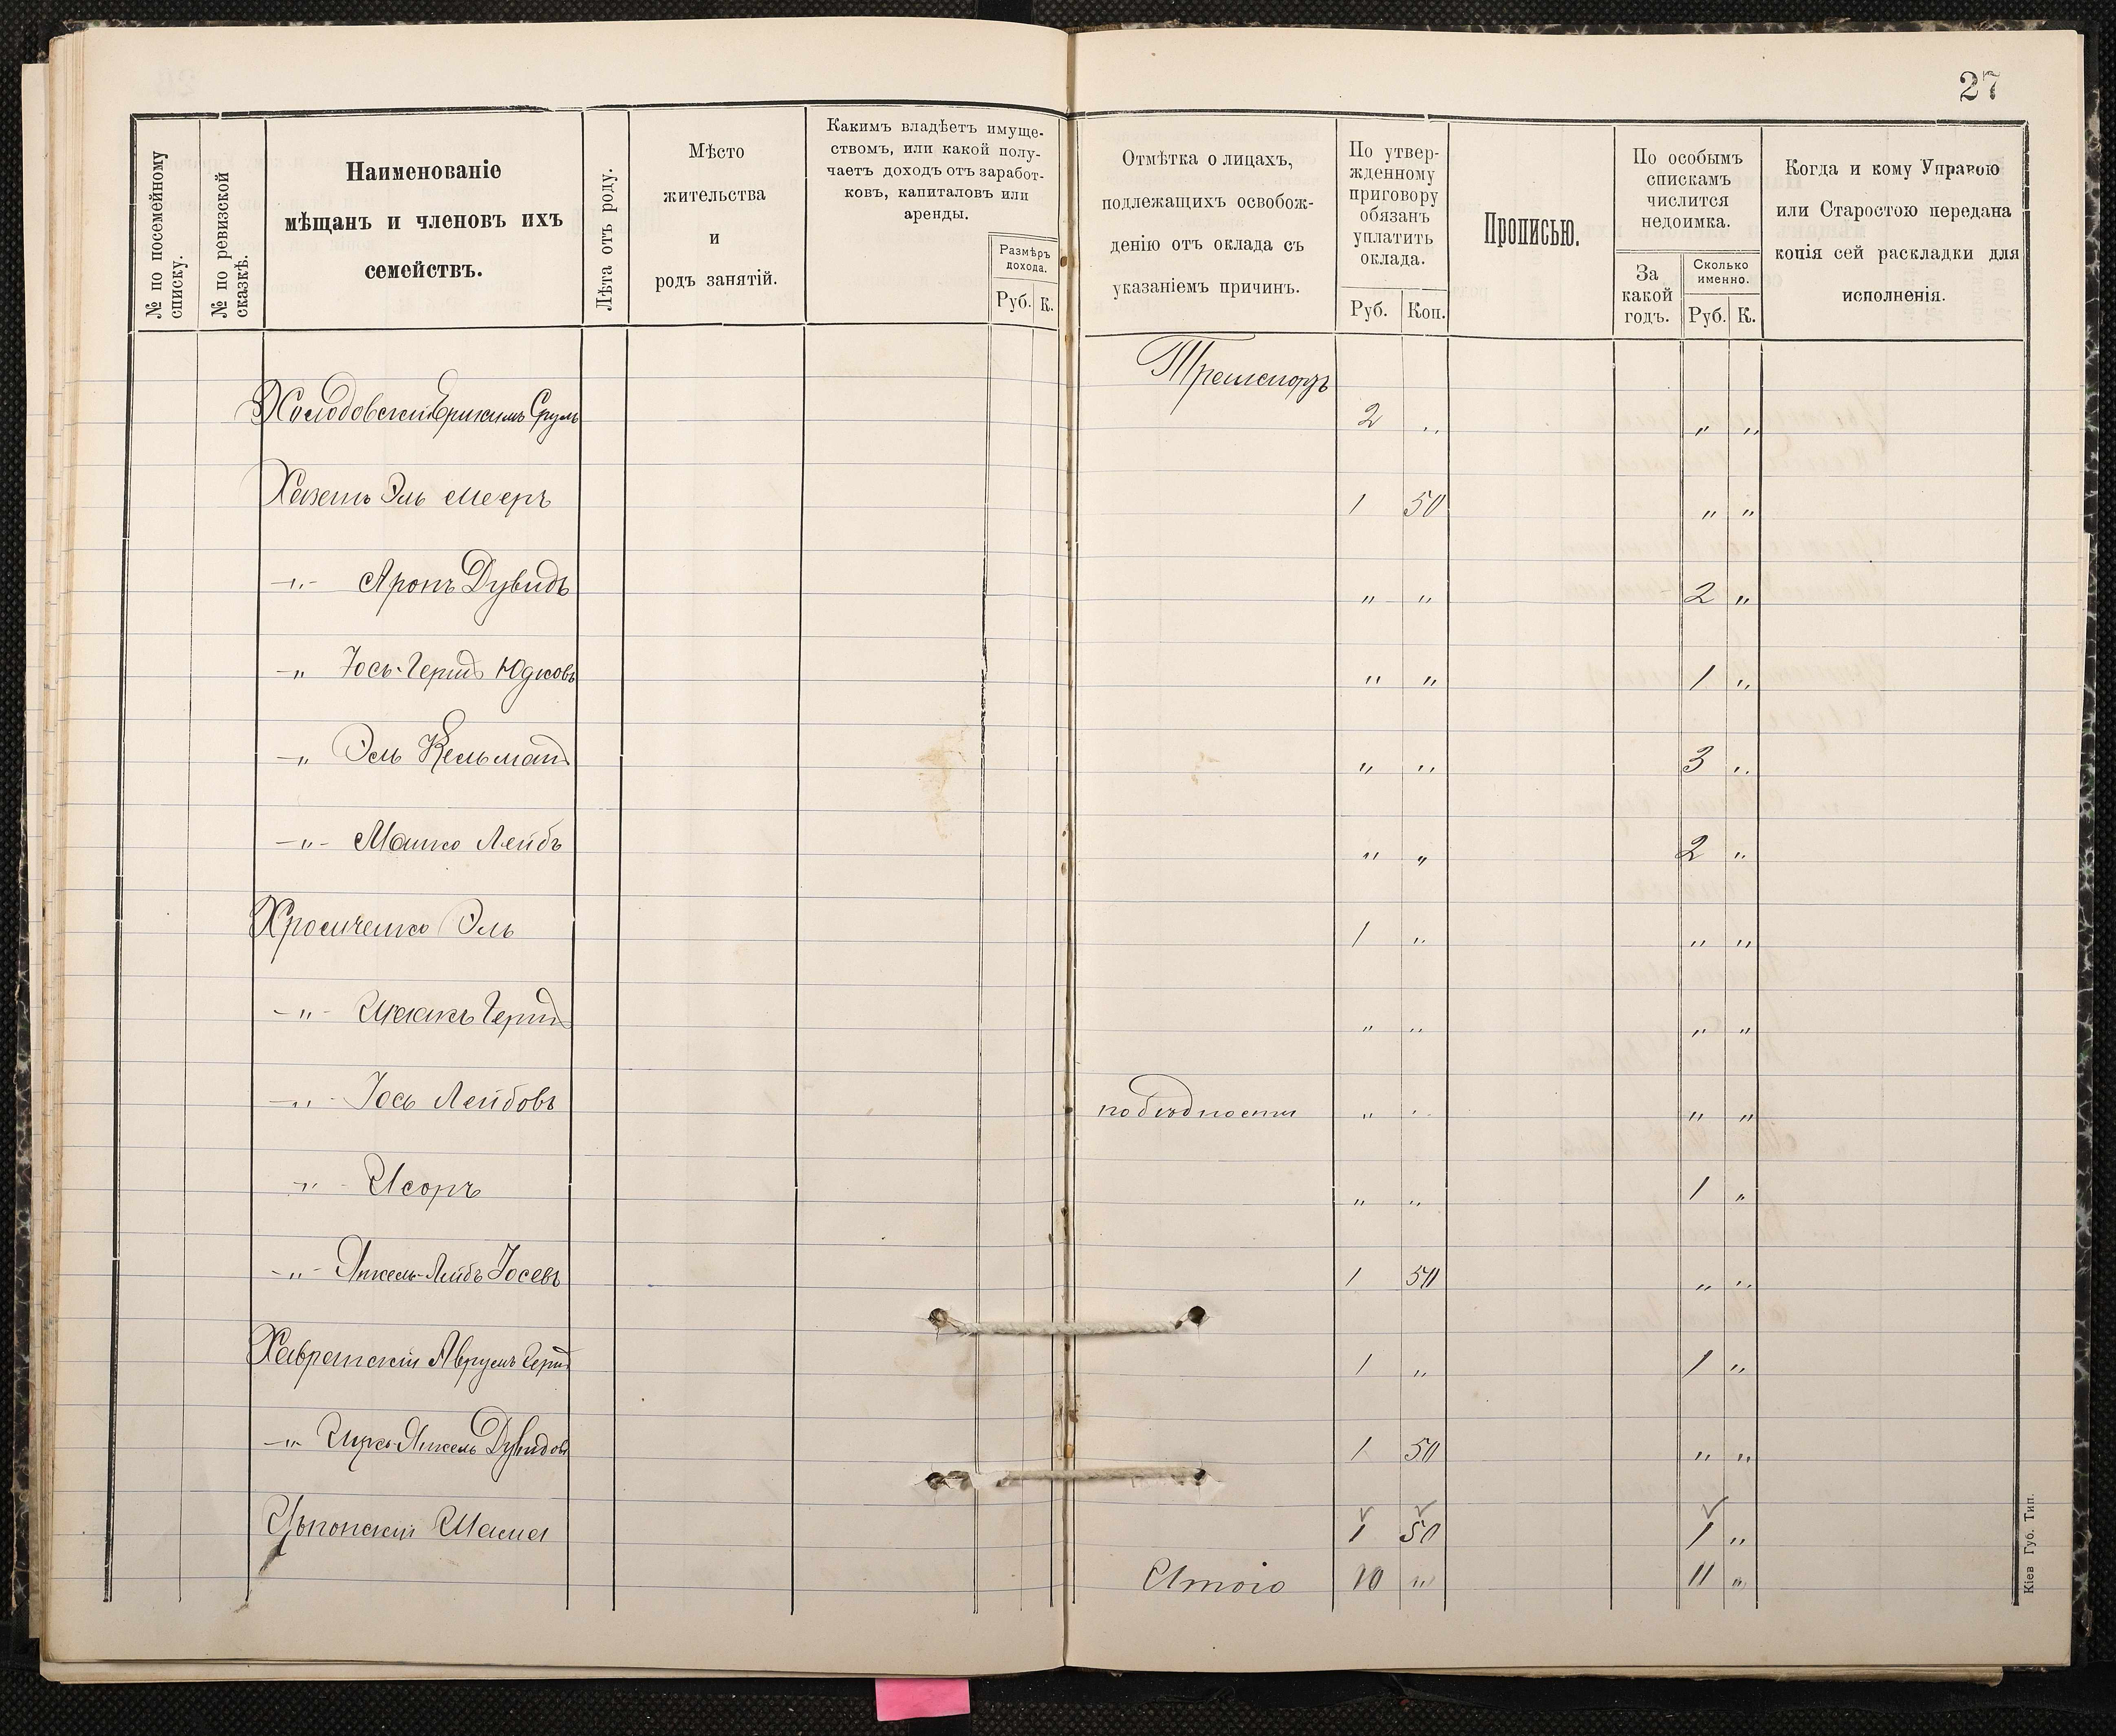 27
№ по посемейному списку.
№ по ревизской сказкѣ.
Наименованіе
мѣщанъ и членовъ ихъ
семействъ.
Лѣта отъ роду.
Мѣсто
жительства
и
родъ занятій.
Какимъ владѣетъ имуще-
ствомъ, или какой полу-
чаетъ доходъ отъ заработ-
ковъ, капиталовъ или
аренды.
Размѣръ
дохода.
Руб. К.
Отмѣтка о лицахъ,
подлежащихъ освобож-
денію отъ оклада съ
указаніемъ причинъ.
По утвер-
жденному
приговору
обязанъ
уплатить
оклада.
Руб. Коп.
Прописью.
По особымъ
спискамъ
числится
недоимка.
За
какой
годъ.
Сколько
именно.
Руб. К.
Когда и кому Управою
или Старостою передана
копія сей раскладки для
исполненія.
Транспортъ
Холодовскій Сруль 2 „ „ „
Хазанъ Эль Мееръ 1 50 „ „
-„- Аронъ Дувидъ „ „ 2 „
-„ Іось-Гершъ Юдковъ „ „ 1 „
-„ Эль Кельманъ „ „ 3 „
-„- Мошко Лейбъ „ „ 2 „
Хромченко Эль 1 „ „ „
-„- Исаакъ Гершъ „ „ „ „
-„- Іось Лейбовъ по бѣдности „ „ „ „
-„- Исоръ „ „ 1 „
-„- Янкель-Лейбъ Іосевъ 1 50 „ „
Хавранскій Аврумъ Герш 1 „ 1 „
-„- Янкель Дувидов 1 50 „ „
1 50 1 „
Итого 10 „ 11 „
Кіев Губ. Тип.